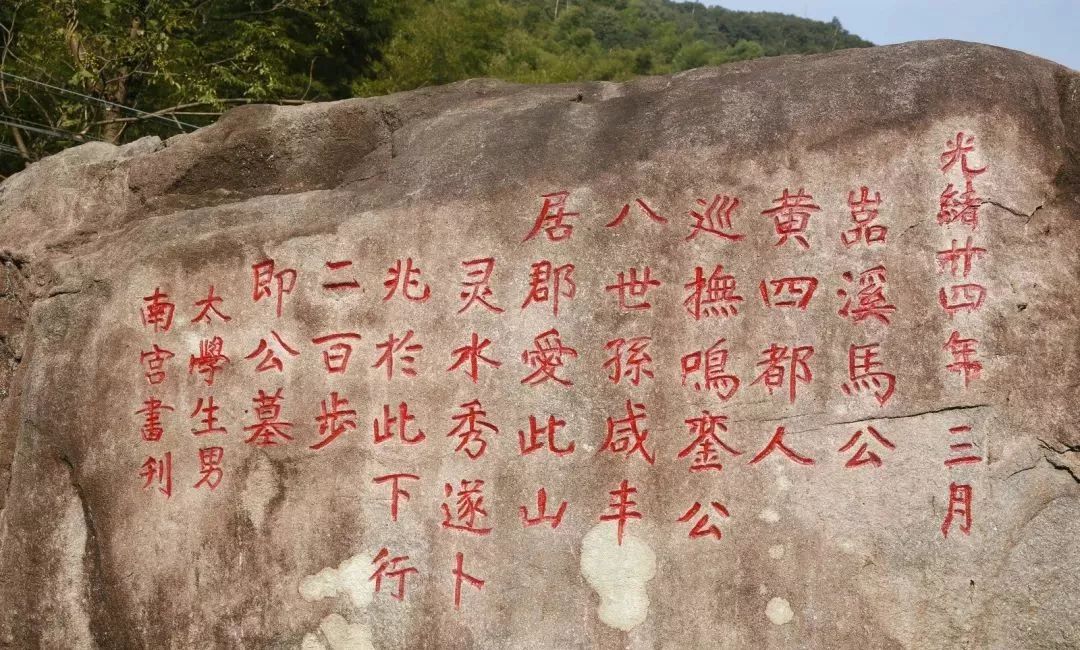 光緒廿四年三月
嵓溪馬公
黄四都人
巡撫鳴鑾公
八世孫咸丰
居郡愛此山
灵水秀遂卜
兆於此下行
二百步
即公墓
太學生男
南宫書刊